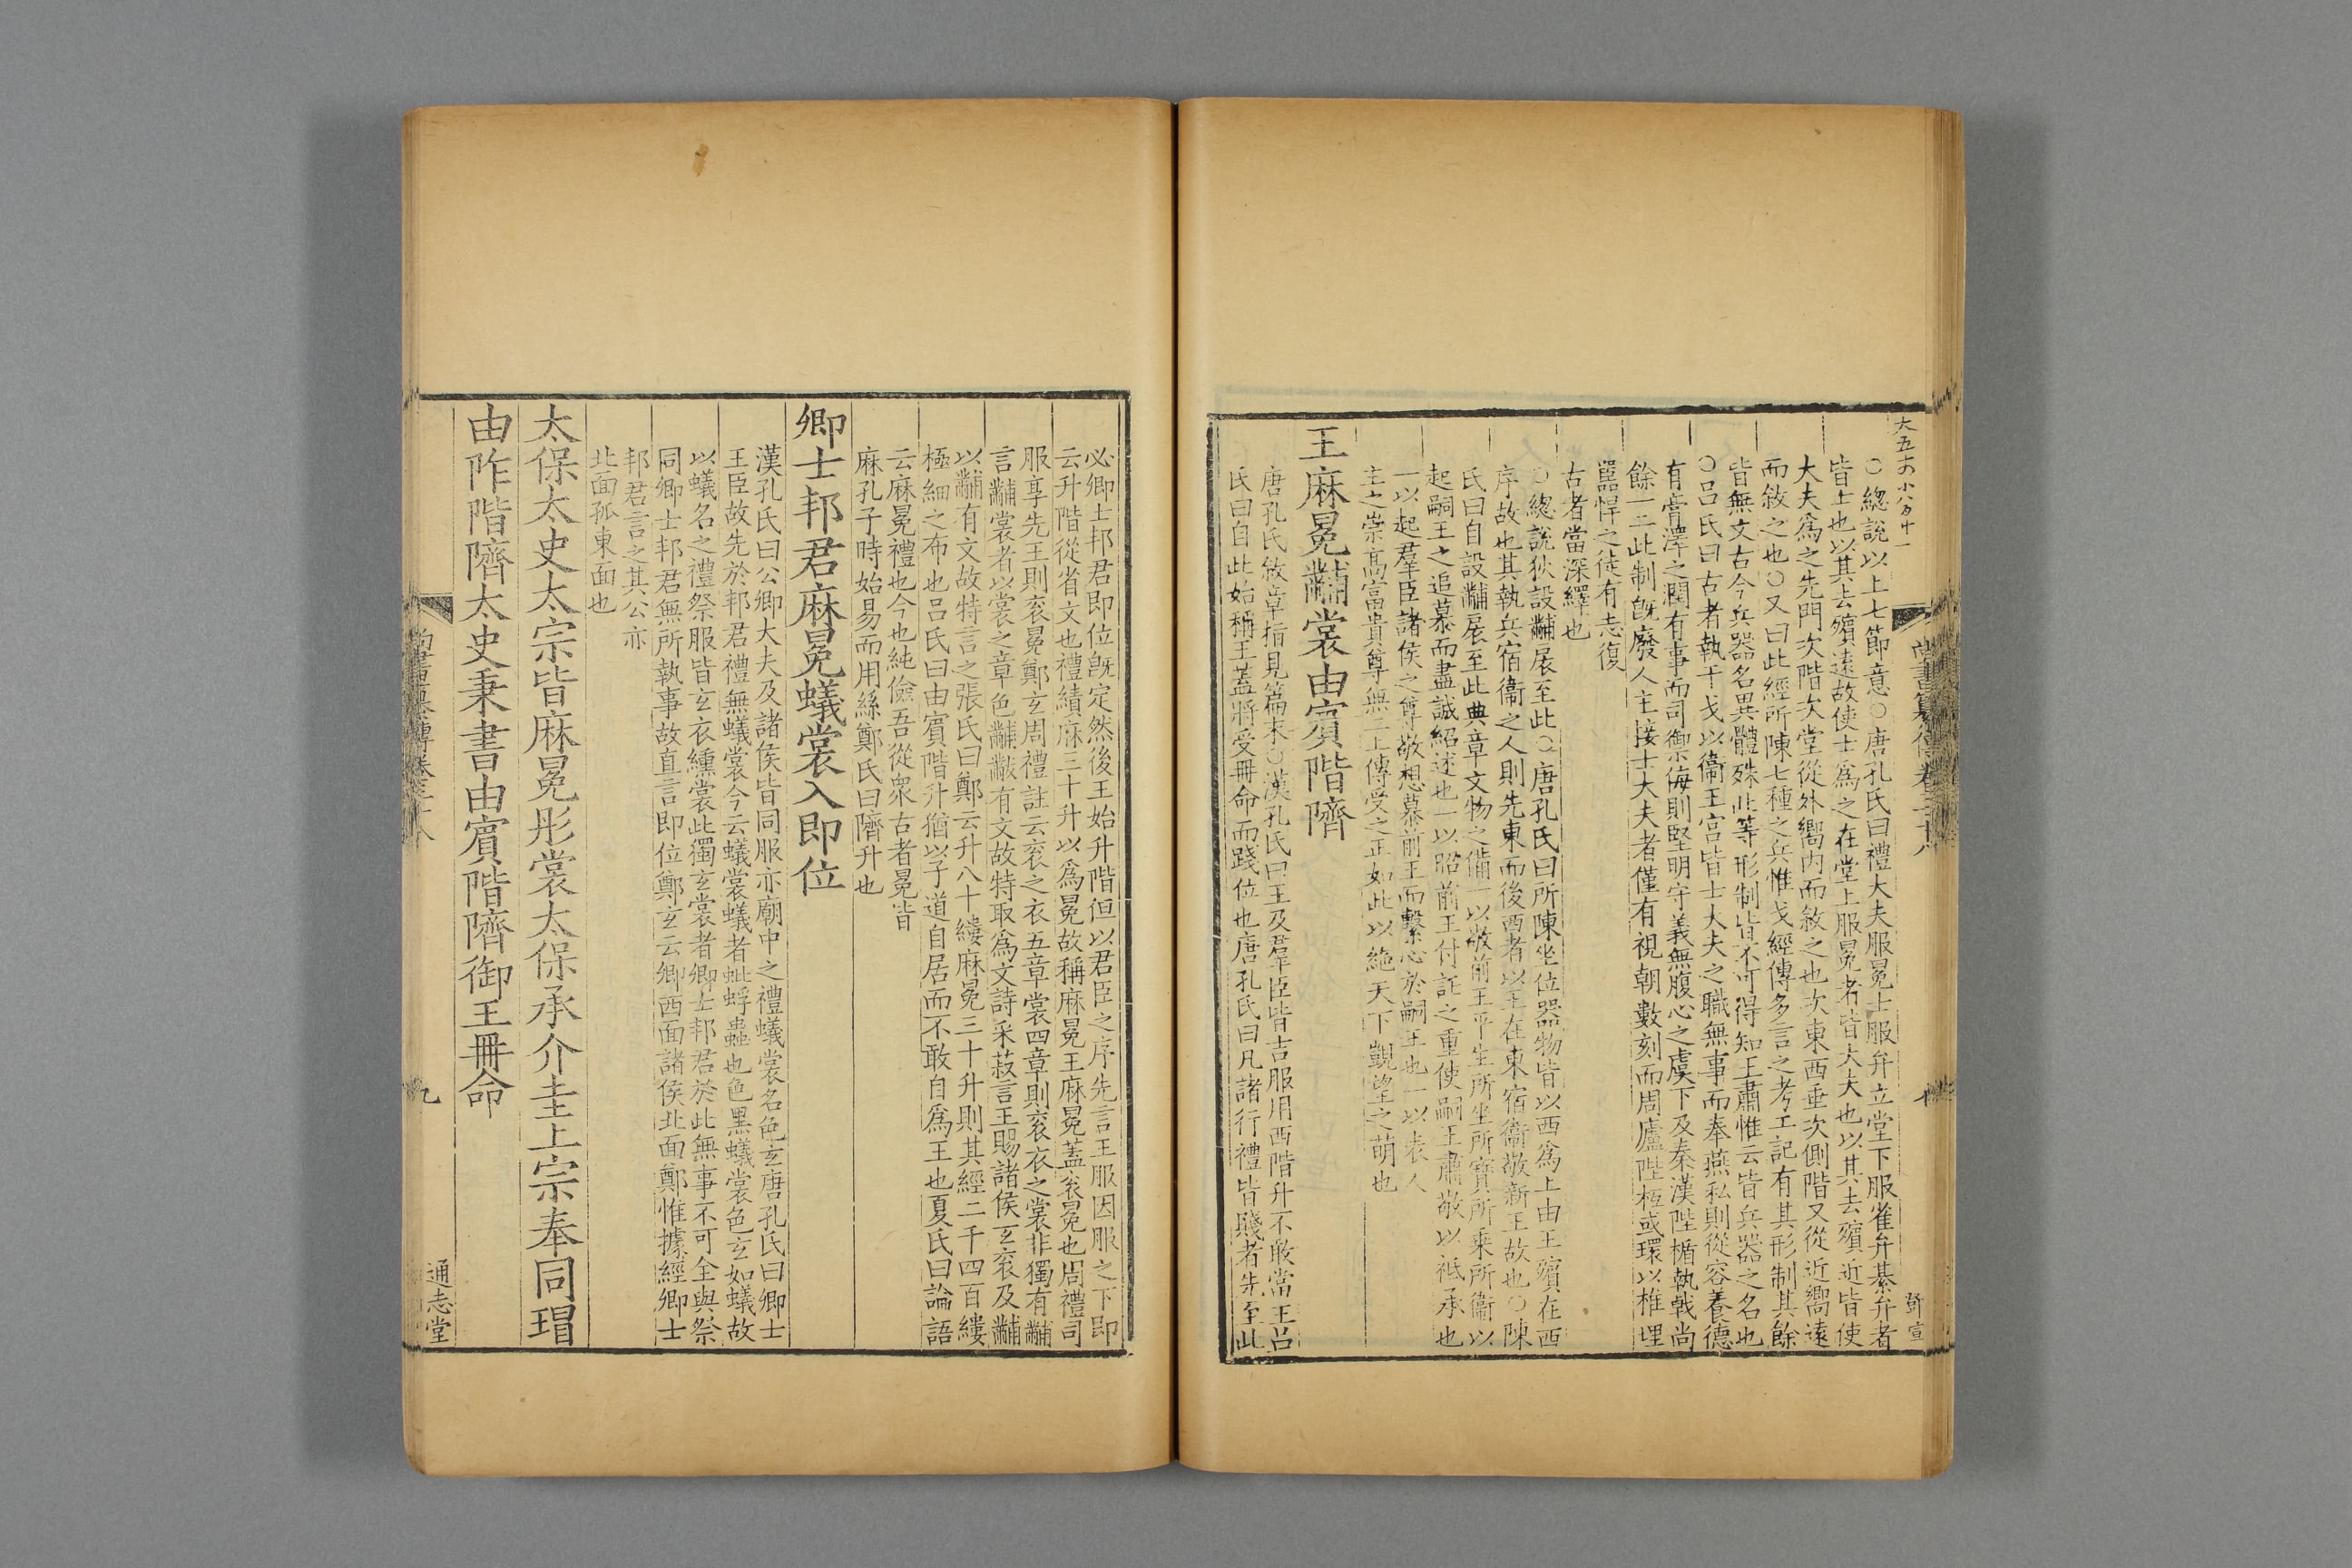 大五十六小八百十一
○總說以上七節意○唐孔氏曰禮大夫服冕士服弁立堂下服雀弁綦弁者
皆士也以其去殯遠故使士爲之在堂上服冕者皆大夫也以其去殯近皆使
大夫爲之先門次階次堂從外嚮內而敘之也次東西垂次側階又從近嚮遠
而敘之也○又曰此經所陳七種之兵惟戈經傳多言之考工記有其形制其餘
皆無文古今兵器名異體殊此等形制皆不可得知王肅惟云皆兵器之名也
○呂氏曰古者執干戈以衞王宮皆士大夫之職無事而奉燕私則從容養德
有膏澤之潤有事而司禦侮則堅明守義無腹心之虞下及秦漢陛楯執戟尚
餘一二此制旣廢人主接士大夫者僅有視朝數刻而周廬陛枑或環以椎埋
嚚悍之徒有志復
古者當深繹也
○總說狄設黼扆至此○唐孔氏曰所陳坐位器物皆以西爲上由王殯在西
序故也其執兵宿衞之人則先東而後西者以王在東宿衞敬新王故也○陳
氏曰自設黼扆至此典章文物之備一以敬前王平生所坐所寶所乘所衞以
起嗣王之追慕而盡誠紹述也一以昭前王付託之重使嗣王肅敬以祗承也
一以起羣臣諸侯之尊敬想慕前王而繫心於嗣王也一以表人
主之崇高富貴尊無二上傳受之正如此以絶天下覬望之萌也
王麻冕黼裳由賓階隮
唐孔氏敘章指見篇末○漢孔氏曰王及羣臣皆吉服用西階升不敢當王呂
氏曰自此始稱王蓋將受冊命而踐位也唐孔氏曰凡諸行禮皆賤者先至此
尚書纂傳卷三十八
九
必卿士邦君即位旣定然後王始升階但以君臣之序先言王服因服之下即
云升階從省文也禮績麻三十升以爲冕故稱麻冕王麻冕蓋衮冕也周禮司
服享先王則衮冕鄭玄周禮註云衮之衣五章裳四章則衮衣之裳非獨有黼
言黼裳者以裳之章色黼黻有文故特取爲文詩采菽言王賜諸侯玄衮及黼
以黼有文故特言之張氏曰鄭云升八十縷麻冕三十升則其經二千四百縷
極細之布也呂氏曰由賓階升猶以子道自居而不敢自爲王也夏氏曰論語
云麻冕禮也今也純儉吾從衆古者冕皆
麻孔子時始易而用絲鄭氏曰隮升也
卿士邦君麻冕蟻裳入即位
漢孔氏曰公卿大夫及諸侯皆同服亦廟中之禮蟻裳名色玄唐孔氏曰卿士
王臣故先於邦君禮無蟻裳今云蟻裳蟻者蚍蜉蟲也色黑蟻裳色玄如蟻故
以蟻名之禮祭服皆玄衣纁裳此獨玄裳者卿士邦君於此無事不可全與祭
同卿士邦君無所執事故直言即位鄭玄云卿西面諸侯北面鄭惟據經卿士
邦君言之其公亦
北面孤東面也
太保太史太宗皆麻冕彤裳太保承介圭上宗奉同瑁
由阼階隮太史秉書由賓階隮御王冊命
尚書纂傳卷三十八
九
通志堂